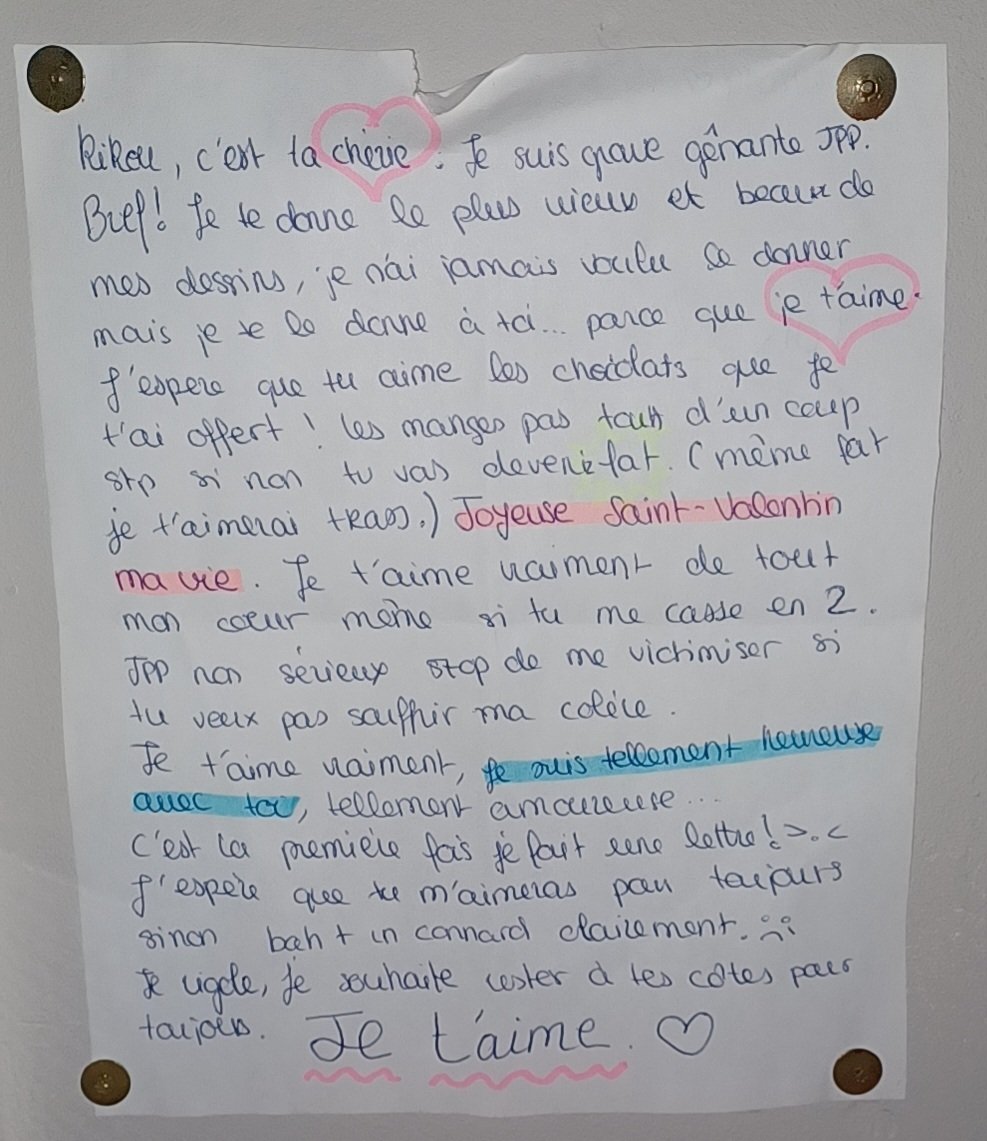 Rikou, c'est ta chérie : Je suis grave gênante JPP.
Bref! Je te donne le plus vieux et beaux de
mes dessins, je n'ai jamais voulu le donner
mais je te le donne à toi... parce que je t'aime.
J'espere que tu aime les chocolats que je
t'ai offert ! les manges pas tous d'un coup
stp si non tu vas devenir fat. (même fat
je t'aimerai tkass.) Joyeuse Saint-Valentin
ma vie. Je t'aime vraiment de tout
mon coeur même si tu me casse en 2.
JPP non sérieux stop de me victimiser si
tu veux pas souffrir ma colère.
Je t'aime vraiment, je suis tellement heureuse
avec toi, tellement amoureuse...
C'est la première fois je fait une lettre! >.<
J'espère que tu m'aimeras pour toujours
sinon bah t un connard clairement. :(
Je rigole, je souhaite rester à tes côtes pour
toujours. Je t'aime. ♡